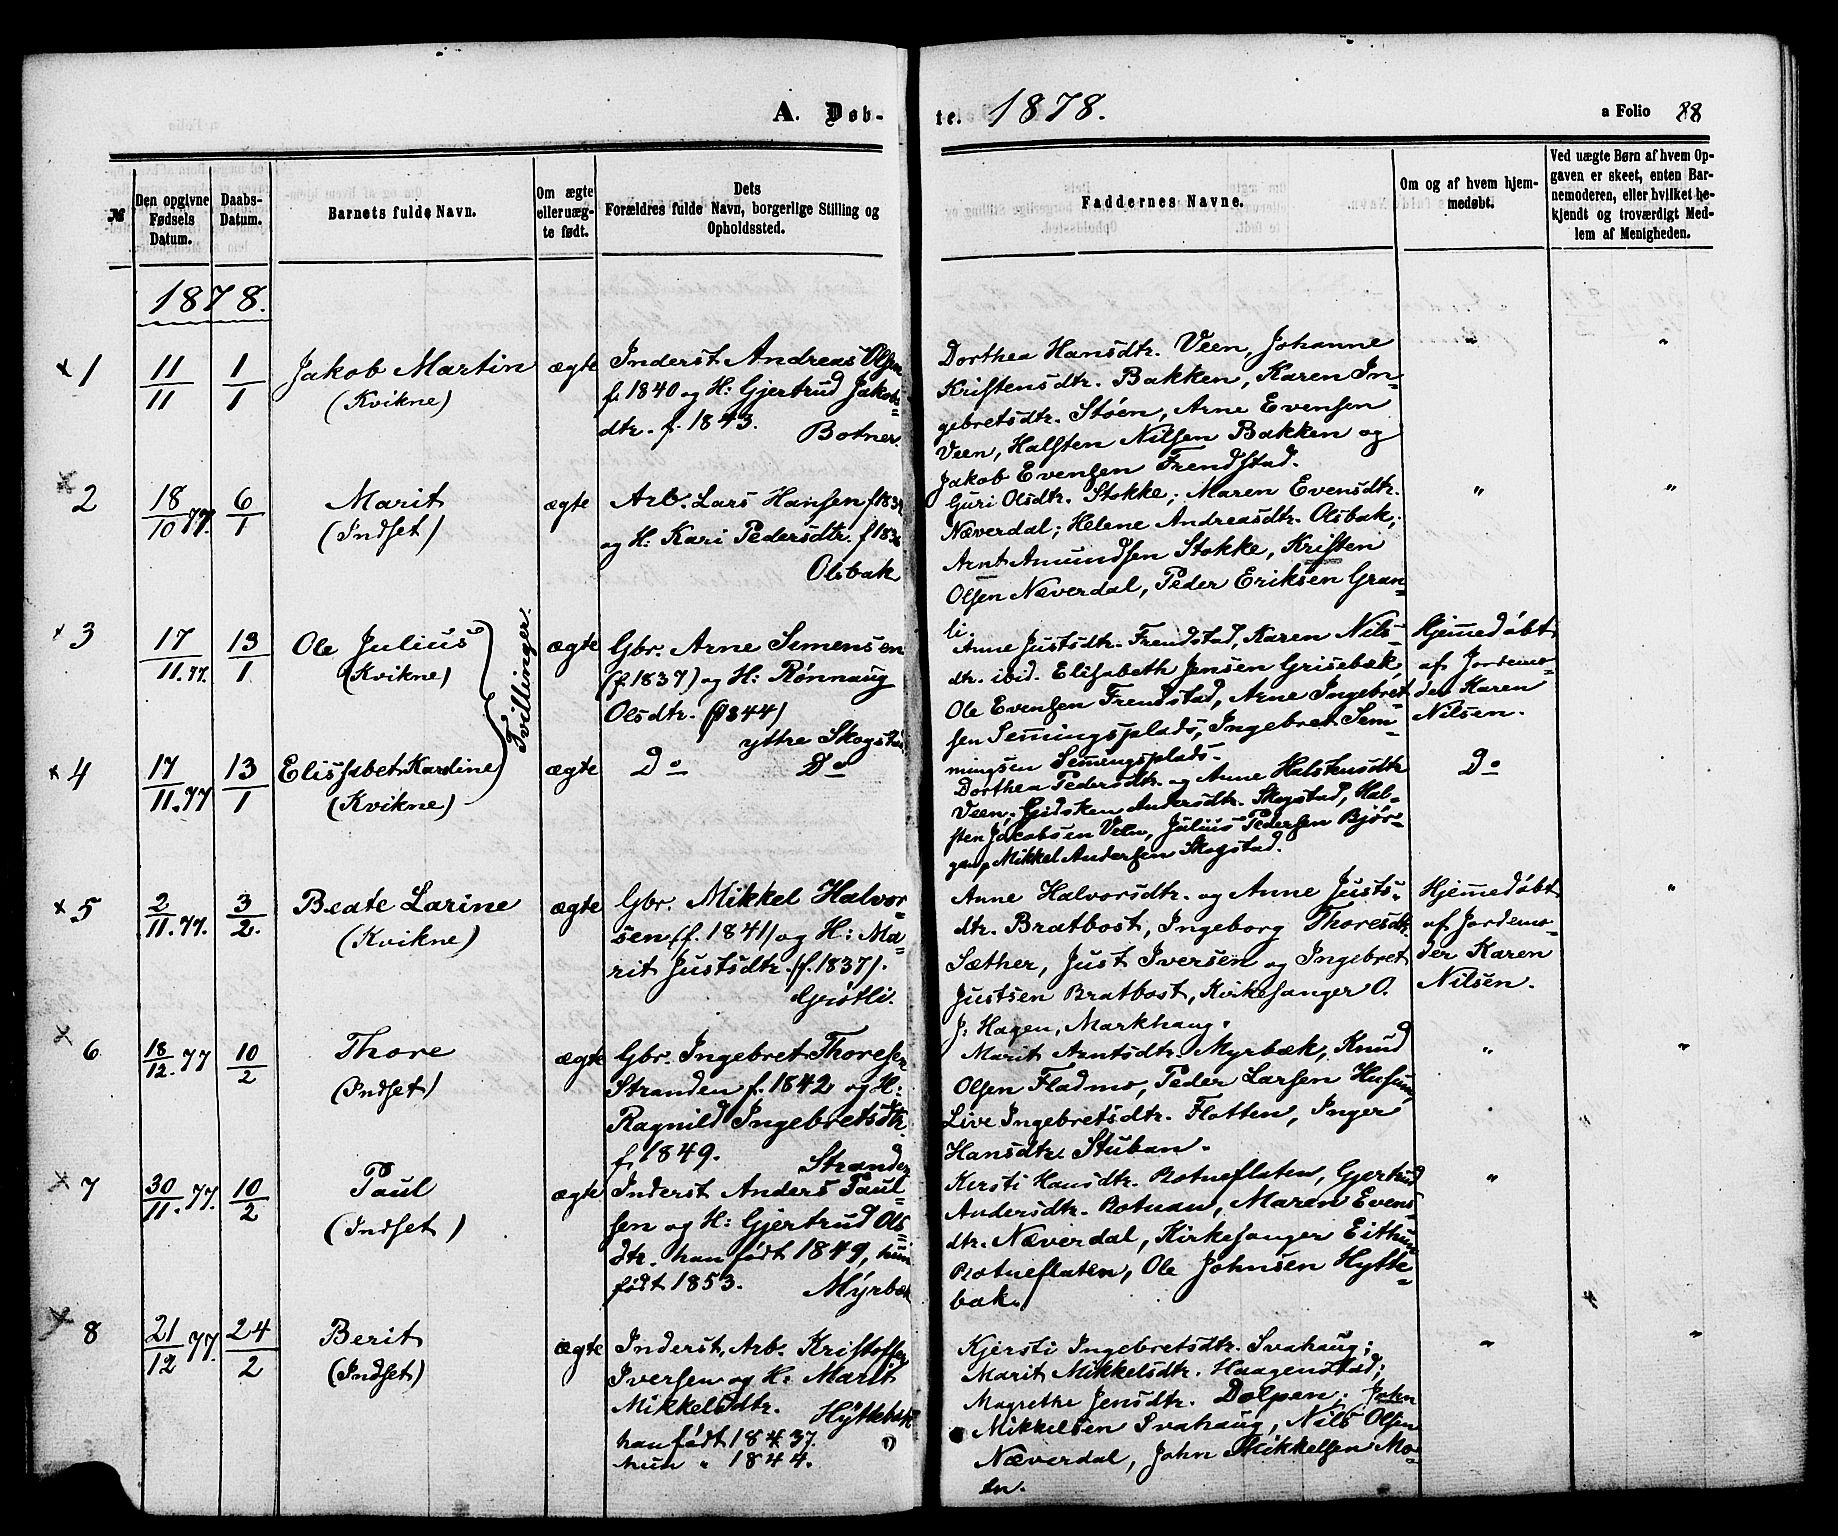 A. Døb-
te. 1878.
a Folio 88
№
Den opgivne Fødsels Datum.
Daabs-Datum.
Barnets fulde Navn.
Om ægte eller uægte født.
Dets
Forældres fulde Navn, borgerlige Stilling og
Opholdssted.
Faddernes Navne.
Om og af hvem hjem-
medøbt.
Ved uægte Børn af hvem Op-
gaven er skeet, enten Bar-
nemoderen, eller hvilket be-
kjendt og troværdigt Med-
lem af Menigheden.
1878.
× 1
11/11
1/1
Jakob Martin
(Kvikne)
ægte
Inderst Andreas Olsen
f. 1840 og H: Gjertrud Jakobs-
dtr. f. 1843.
Botner.
Dorthea Hansdtr. Veen, Johanne
Kristensdtr. Bakken, Karen In-
gebretsdtr. Støen, Arne Evensen
Veen, Halsten Nilsen Bakken og
Jakob Evensen Frendstad.
"
"
× 2
18/10 77.
6/1
Marit
(Indset)
ægte
Arb. Lars Hansen
og H: Kari Pedersdtr.
Olsbak
Guri Olsdtr. Stokke; Maren Evensdtr.
Næverdal; Helene Andreasdtr. Olsbak;
Arnt Amundsen Stokke, Kristen
Olsen Næverdal, Peder Eriksen Gran-
li.
"
"
× 3
17/11. 77.
13/1
Ole Julius
(Kvikne)
Tvillinger.
ægte
Gbr. Arne Simensen
(f. 1837) og H: Rønnaug
Olsdtr. (f. 1844)
yttre Skogstad
Anne Justsdtr. Frendstad, Karen Nils-
dtr. ibid. Elisabeth Jensen Grisebæk,
Ole Evensen Frendstad, Arne Ingebret-
sen Semingsplads, Ingebret Sem-
mingsen Semingsplads.
Hjemmedøbt
af Jordemo-
der Karen
Nilsen.
× 4
17/11. 77
13/1
Elissabet Kardine
(Kvikne)
ægte
Do Do
Dorthea Pedersdtr. og Anne Halstensdtr
Veen; Gjidsken Andersdtr. Skogstad, Hal-
sten Jakobsen Veen, Julius Pedersen Bjør-
gan, Mikkel Andersen Skogstad.
Do
× 5
2/11. 77.
3/2.
Beate Larine
(Kvikne)
ægte
Gbr. Mikkel Halvor-
sen (f. 1841) og H: Ma-
rit Justsdtr. (f. 1837).
Grøtli.
Anne Halvorsdtr. og Anne Justs-
dtr. Bratbost, Ingeborg Thoresdtr.
Sæther, Just Iversen og Ingebret
Justsen Bratbost, Kirkesanger O.
J. Hagen, Markhaug.
Hjemmedøbt
af Jordemo-
der Karen
Nilsen.
"
× 6
18/12. 77
10/2
Thore
(Indset)
ægte
Gbr. Ingebret Thoresen
Stranden f. 1842 og H:
Ragnild Ingebretsdtr.
f. 1849.
Stranden
Marit Arntsdtr. Myrbæk, Knud
Olsen Fladmo, Peder Larsen Husum,
Live Ingebretsdtr. Flatten, Inger
Hansdtr. Stuban.
"
"
× 7
30/11. 77.
10/2
Paul
(Indset)
ægte
Inderst Anders Paul-
sen og H: Gjertrud Ols-
dtr. han født 1849, hun
født 1853.
Myrbæk
Kersti Hansdtr. Botneflaten, Gjertrud
Andersdtr. Botnan, Maren Evens-
dtr. Næverdal, Kirkesanger Eithun
Botneflaten, Ole Johnsen Hytte-
bak.
"
× 8
21/12 77.
24/2
Berit
(Indset)
ægte
Inderst, Arb. Kristoffer
Iversen og H: Marit
Mikkelsdtr.
Hyttebak
han født 1837.
hun " 1844.
Kjersti Ingebretsdtr. Svahaug;
Marit Mikkelsdtr. Haagenstad;
Magrethe Jensdtr. Dølpen; John
Mikkelsen Svahaug, Nils Olsen
Næverdal, John Mikkelsen Mo-
en.
"
"